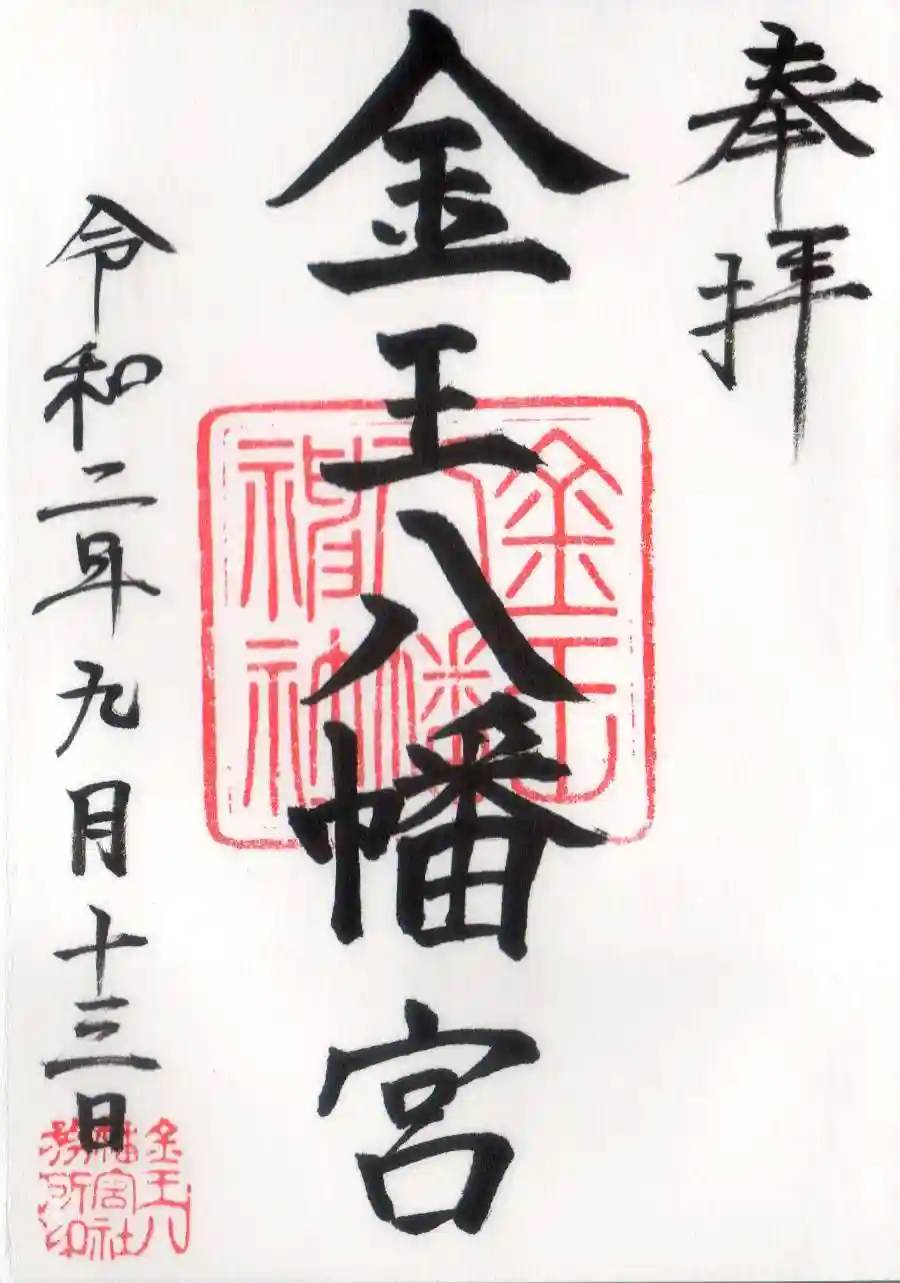 奉拝
金王八幡宮
令和二年九月十三日
金王八幡神社
金王八幡宮社務所印